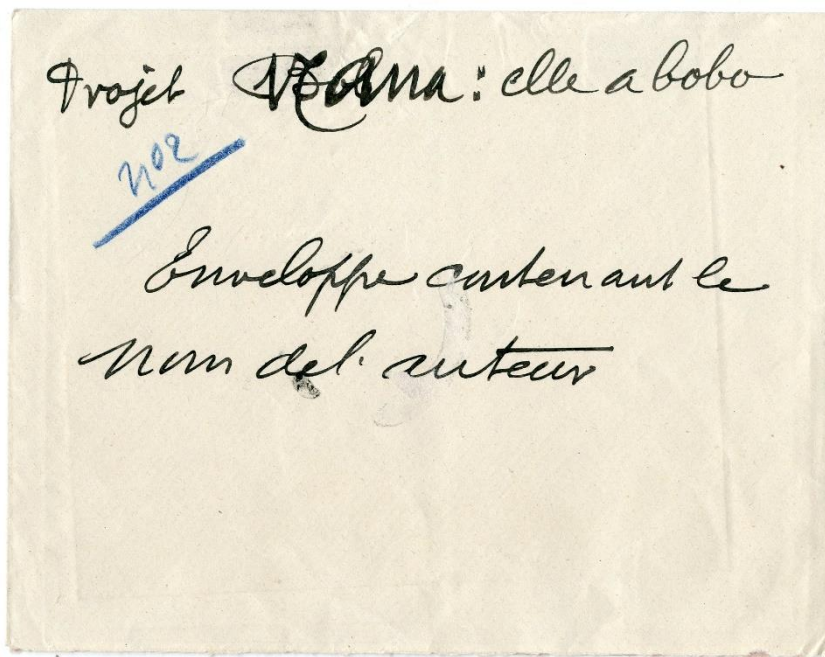 Projet : elle a bobo
no 2
Enveloppe contenant le
nom de l'auteur